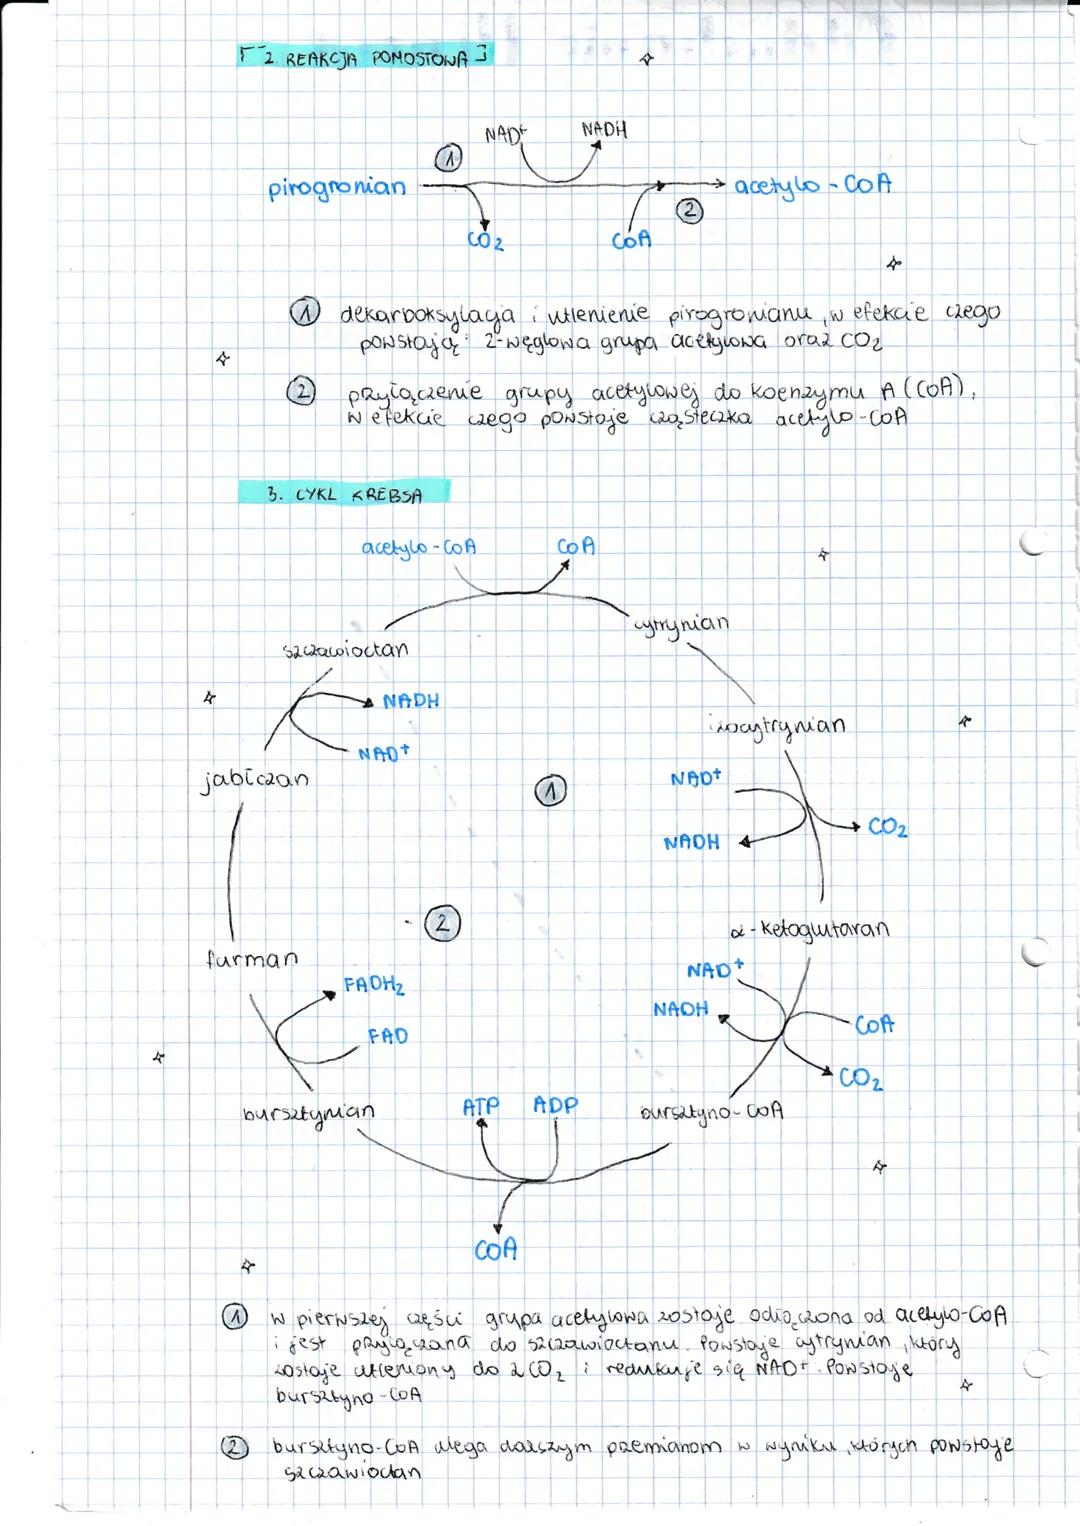 [ 2. REAKCJA POMOSTOWA ]
NAD+ NADH
①
pirogronian acetylo-CoA
②
CO2 CoA
① dekarboksylacja i utlenienie pirogronianu, w efekcie czego
powstają: 2-węglowa grupa acetylowa oraz CO2
② przyłączenie grupy acetylowej do koenzymu A (CoA),
w efekcie czego powstaje cząsteczka acetylo-CoA
3. CYKL KREBSA
acetylo-CoA CoA
cytrynian
szczawioctan
NADH
izocytrynian
NAD+
jabłczan
NAD+
①
CO2
NADH
②
α-ketoglutaran
furman
NAD+
FADH2
NADH
CoA
FAD
CO2
bursztynian ATP ADP bursztyno-CoA
CoA
① w pierwszej części grupa acetylowa zostaje odłączona od acetylo-CoA
i jest przyłączana do szczawioctanu. Powstaje cytrynian, który
zostaje utleniony do 2 CO2 i redukuje się NAD+. Powstaje
bursztyno-CoA
② bursztyno-CoA ulega dalszym przemianom w wyniku, których powstaje
szczawioctan